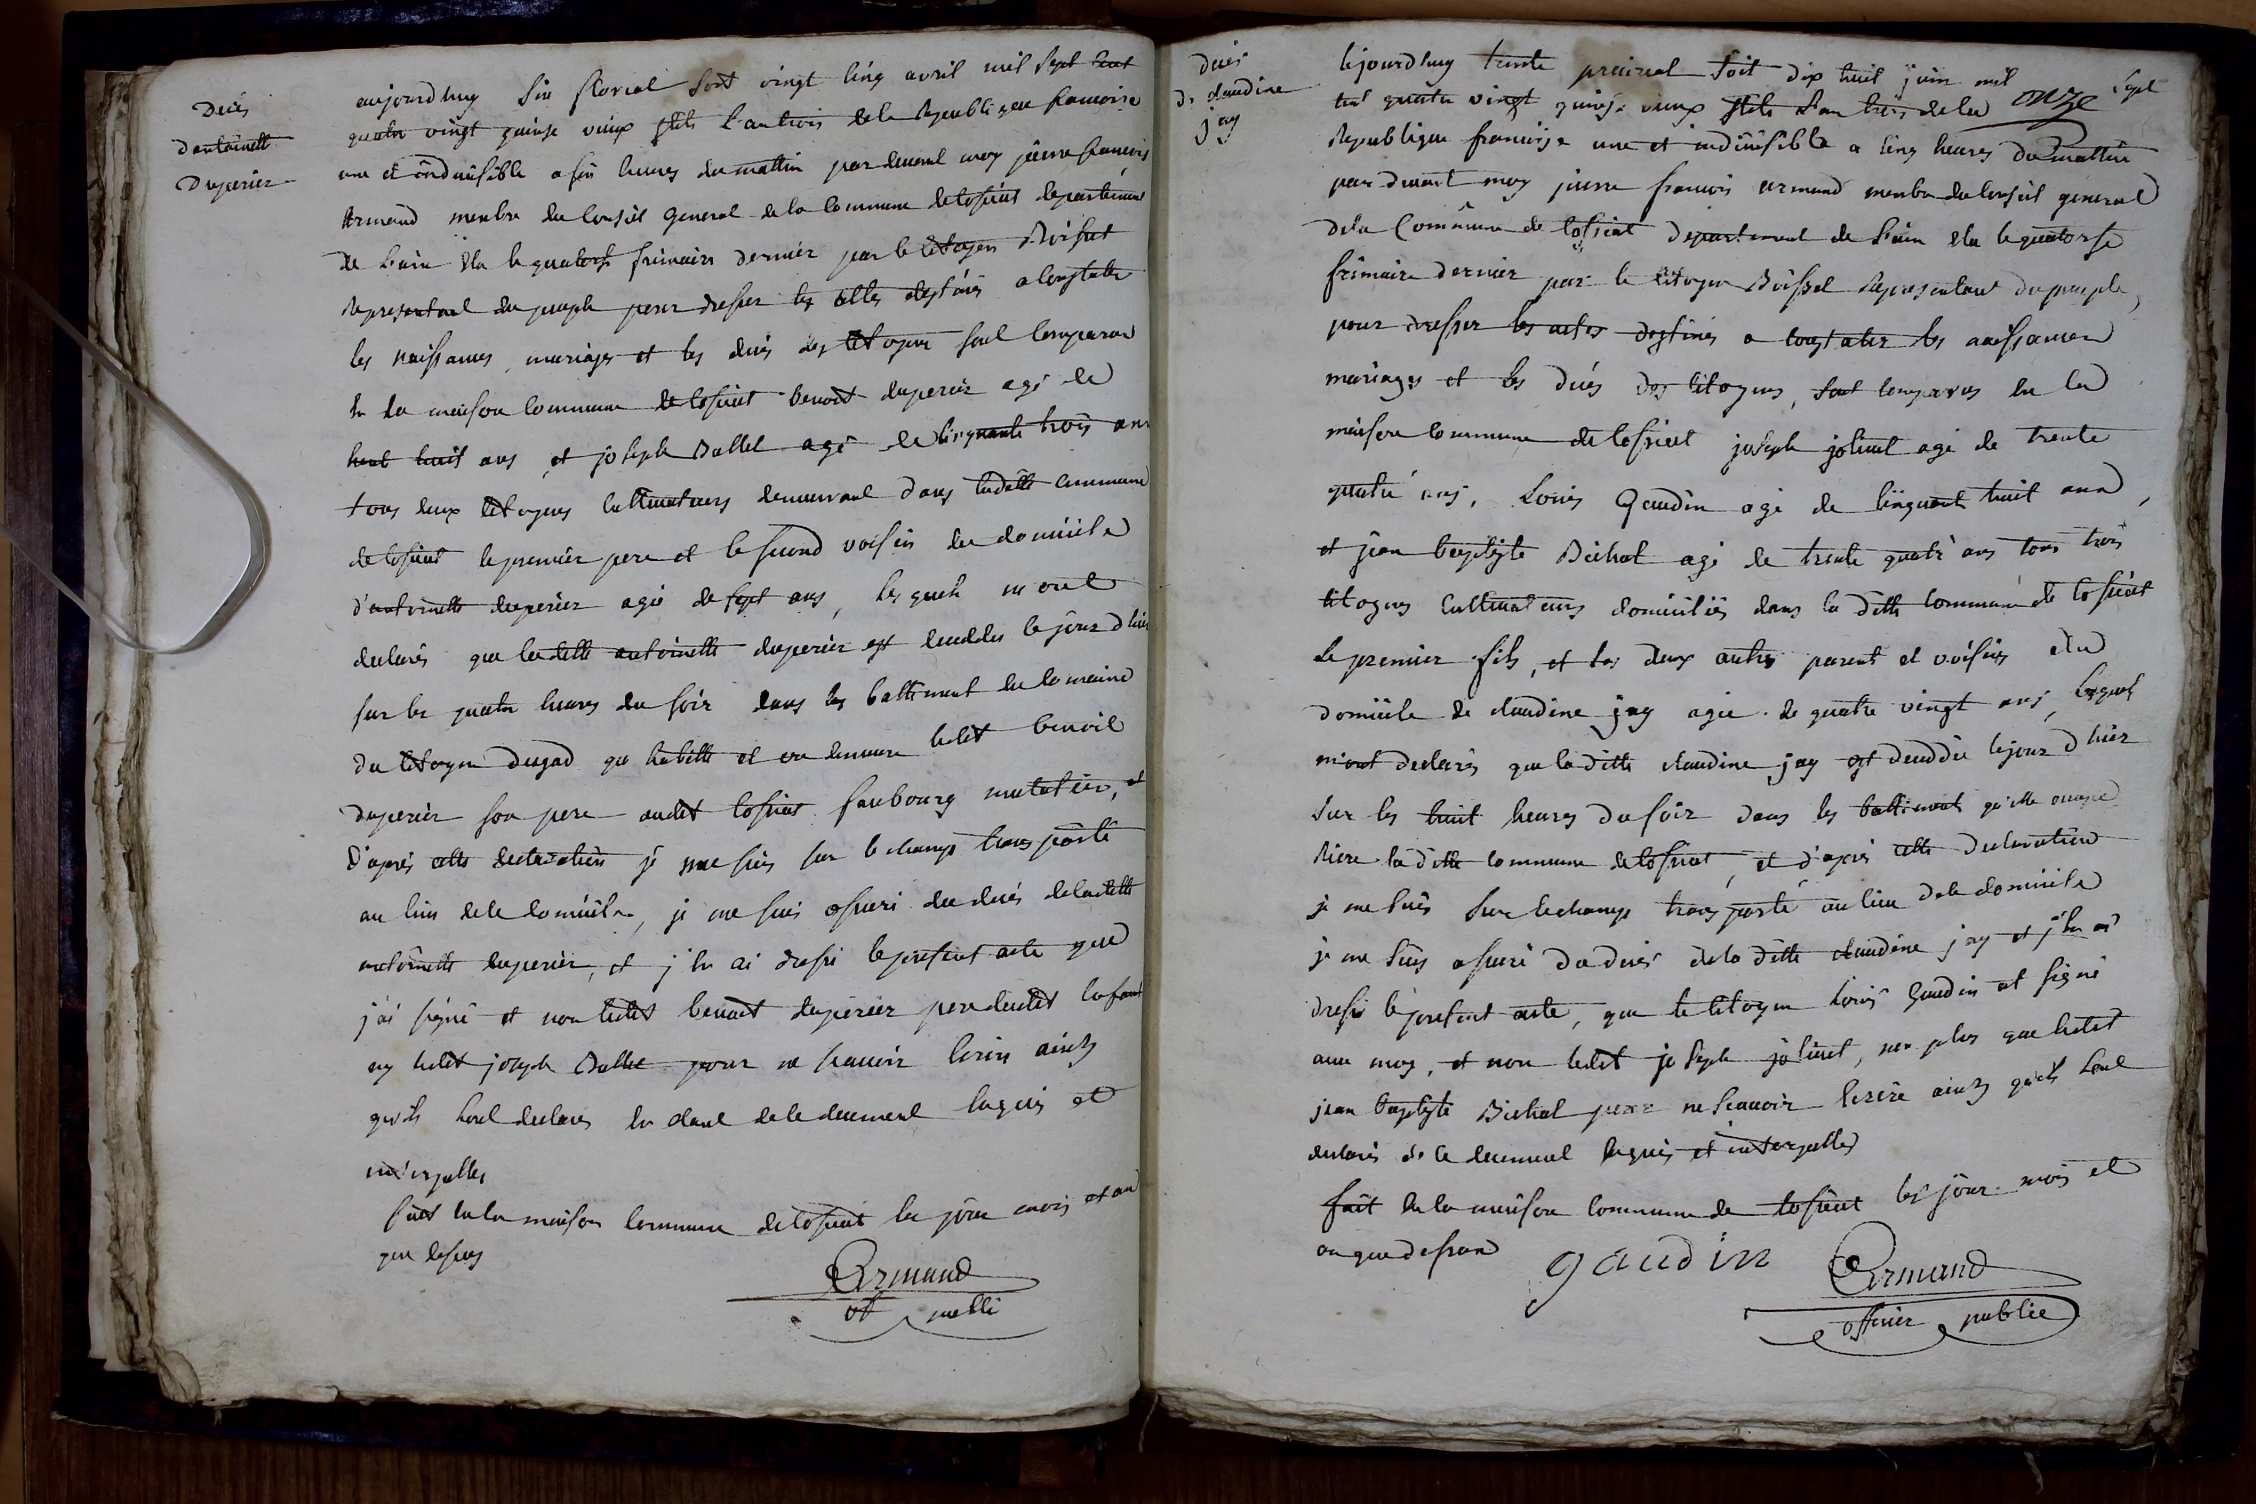 Décés
d'antoinette
Duperier
aujourdhuy six floreal soit vingt cinq avril mil sept cent
quatre vingt quinze vieux stile l'an trois de la Republique francoise
une et indivisible a six heures du mattin par devant moy pierre francois
Armand membre du Conseil general de la Commune de losieat departement
de L'ain élu le quatorze frimaire dernier par le citoyen Boisset
Representant du peuple pour dresser les actes destinés a constater
les naissances, mariages et les décés des citoyens sont comparus
en la maison commune de losieat benoit duperier agé de
huit ans, et joseph Ballet agé de cinquante trois ans
tous deux citoyens cultivateurs demeurant dans laditte commune
de losieat le premier pere et le second voisin du domicile
d'antoinette duperier agée de sept ans, les quels m'ont
declarés que laditte antoinette duperier est deceddée le jour d'hier
sur les quatre heures du soir dans les battiment du domaine
du citoyen dugad que habitte et en demeure ledit benoit
duperier son pere audit losieat faubourg, et
d'aprés cette declaration je me suis sur le champs transporté
au lieu de ce domicile, je me suis assuré du décés de laditte
antoinette duperier, et j'en ai dressé le present acte que
j'ai signé et non ledit benoit duperier pere dudit enfant
ny ledit joseph Ballet pour ne scavoir ecrire ainsy
qu'ils l'ont declarés en étant de ce deument enquis et
interpellés
fait en la maison commune de losieat les jour mois et an
que dessus
Armand
of public
Décés
de claudine
jay
Cejourdhuy trente prairial soit dix huit juin mil sept
cent quatre vingt quinze vieux stile l'an trois de la
onze
Republique francoise une et indivisible a cinq heures du mattin
par devant moy pierre francois armand membre du Conseil general
de la Commune de losieat departement de L'ain élu le quatorse
frimaire dernier par le citoyen Boisset Representant du peuple,
pour dresser les actes destinés a constater les naissances
mariages et les décés des citoyens, sont comparus en la
maison commune de losieat joseph jolinet agé de trente
quatre ans, Louis Gaudin agé de cinquante huit ans,
et jean baptiste Bichat agé de trente quatre ans tous trois
citoyens cultivateurs domiciliés dans la ditte commune de losieat
le premier fils, et les deux autres parent et voisins du
domicile de claudine jay agée de quatre vingt ans, lesquels
m'ont declarés que la ditte claudine jay est deceddée le jour d'hier
sur les huit heures du soir dans les battiments qu'elle occupe
riere la ditte commune de losieat, et d'aprés cette declaration
je me suis sur le champs transporté au lieu de ce domicile
je me suis assuré du décés de la ditte claudine jay et j'en ai
dressé le present acte, que le citoyen Louis Gaudin at signé
avec moy, et non ledit joseph jolinet, non plus que ledit
jean baptiste Bichat pour ne scavoir ecrire ainsy qu'ils l'ont
declarés de ce deument enquis et interpellés
fait en la maison commune de losieat les jour mois et
an que dessus
gaudin
Armand
officier public